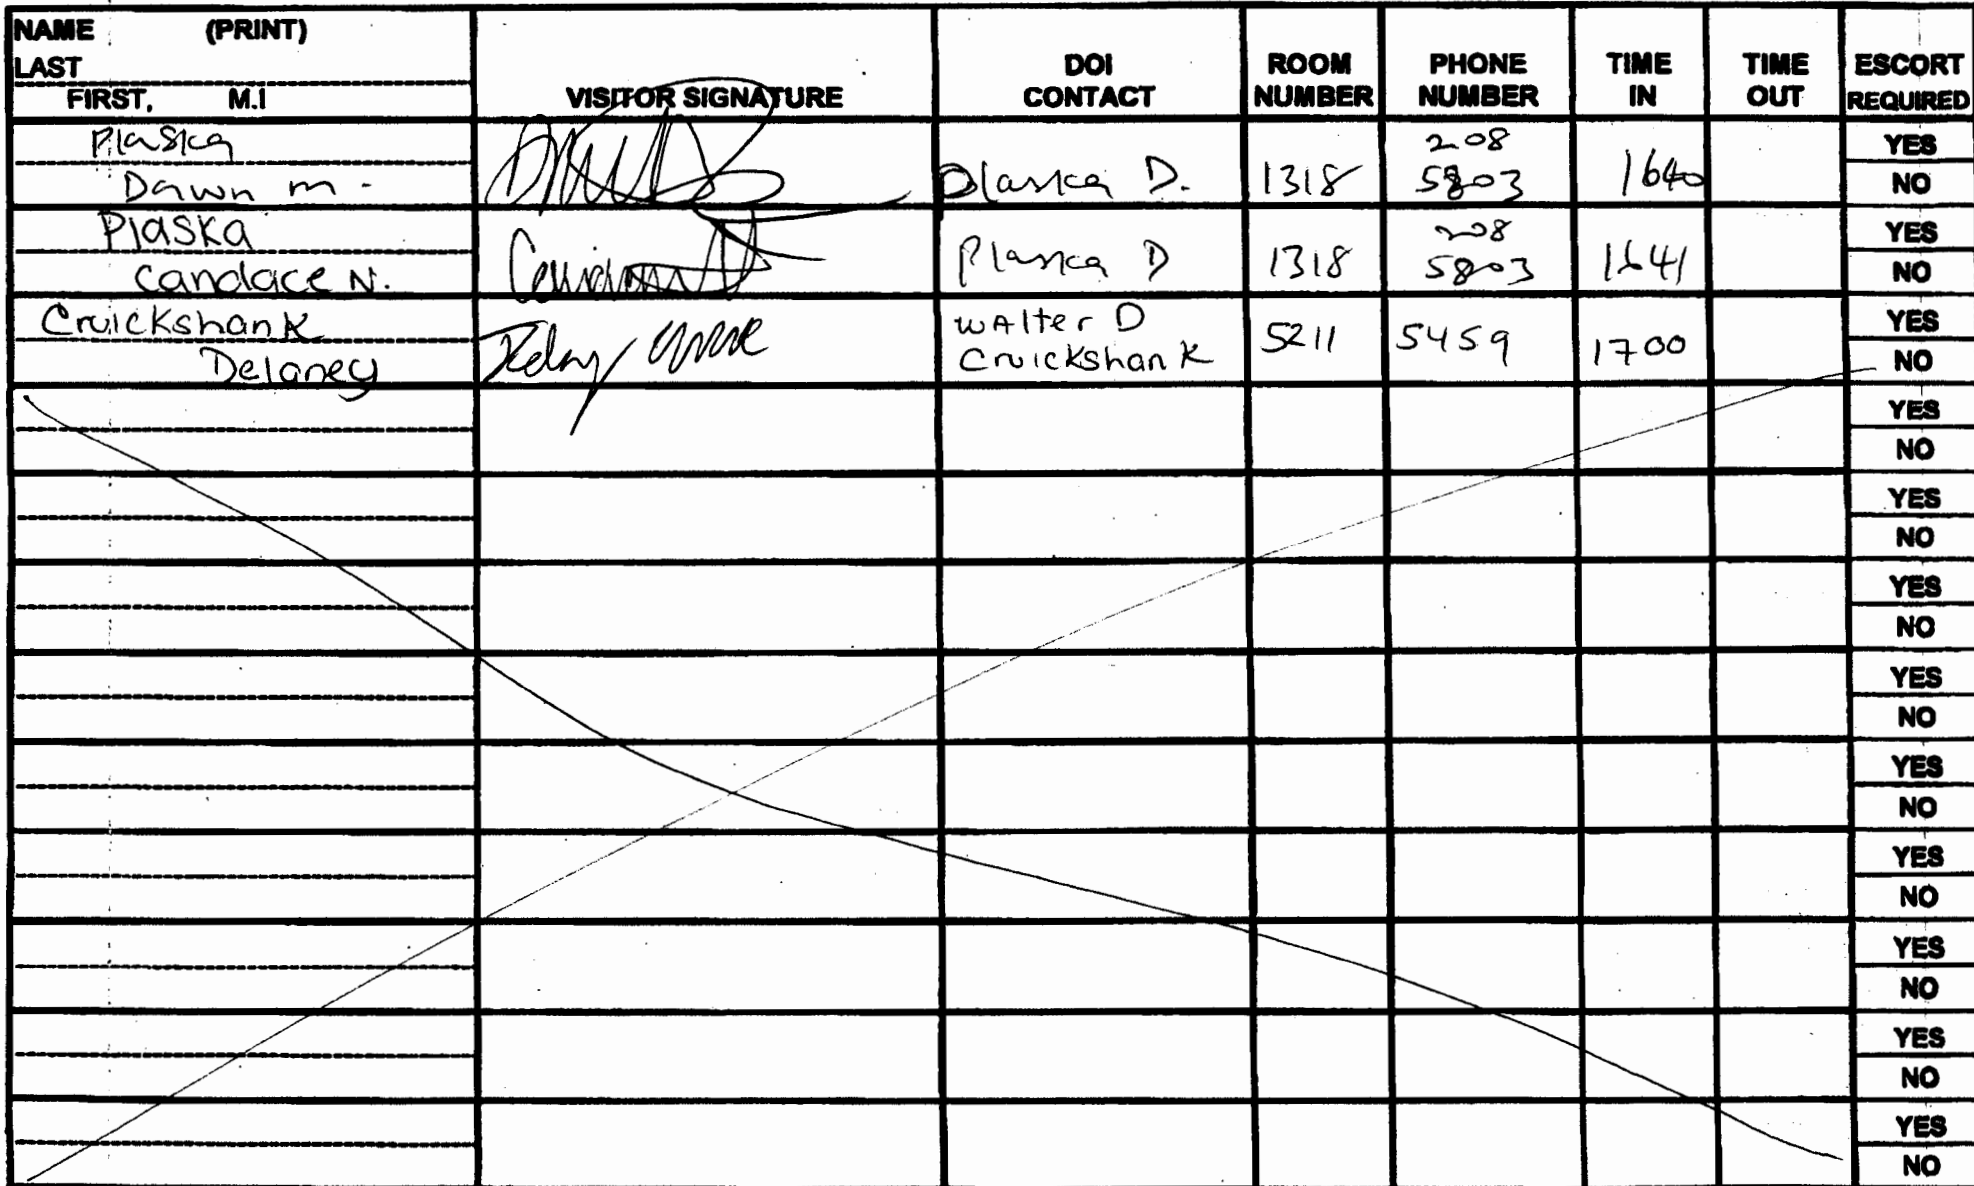 NAME (PRINT)
LAST
FIRST, M.I
VISITOR SIGNATURE
DOI
CONTACT
ROOM
NUMBER
PHONE
NUMBER
TIME
IN
TIME
OUT
ESCORT
REQUIRED
Plaska
Dawn m.
Plaska D.
1318
208
5803
1640
YES
NO
Plaska
Candace N.
Plaska D
1318
208
5803
1641
YES
NO
Cruickshank
Delaney
WAlter D
Cruickshank
5211
5459
1700
YES
NO
YES
NO
YES
NO
YES
NO
YES
NO
YES
NO
YES
NO
YES
NO
YES
NO
YES
NO